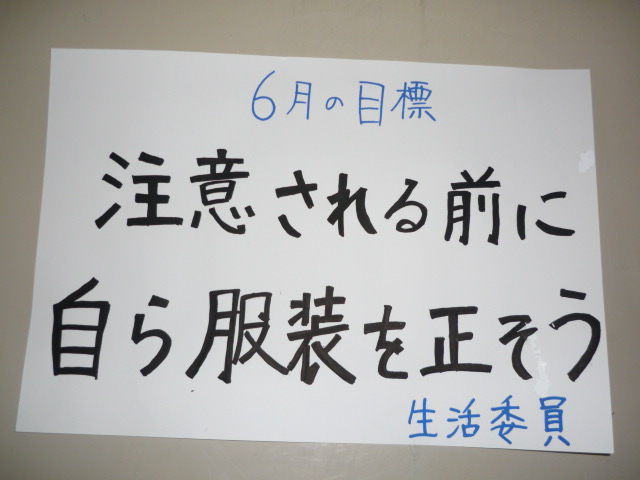 6月の目標
注意される前に
自ら服装を正そう
生活委員